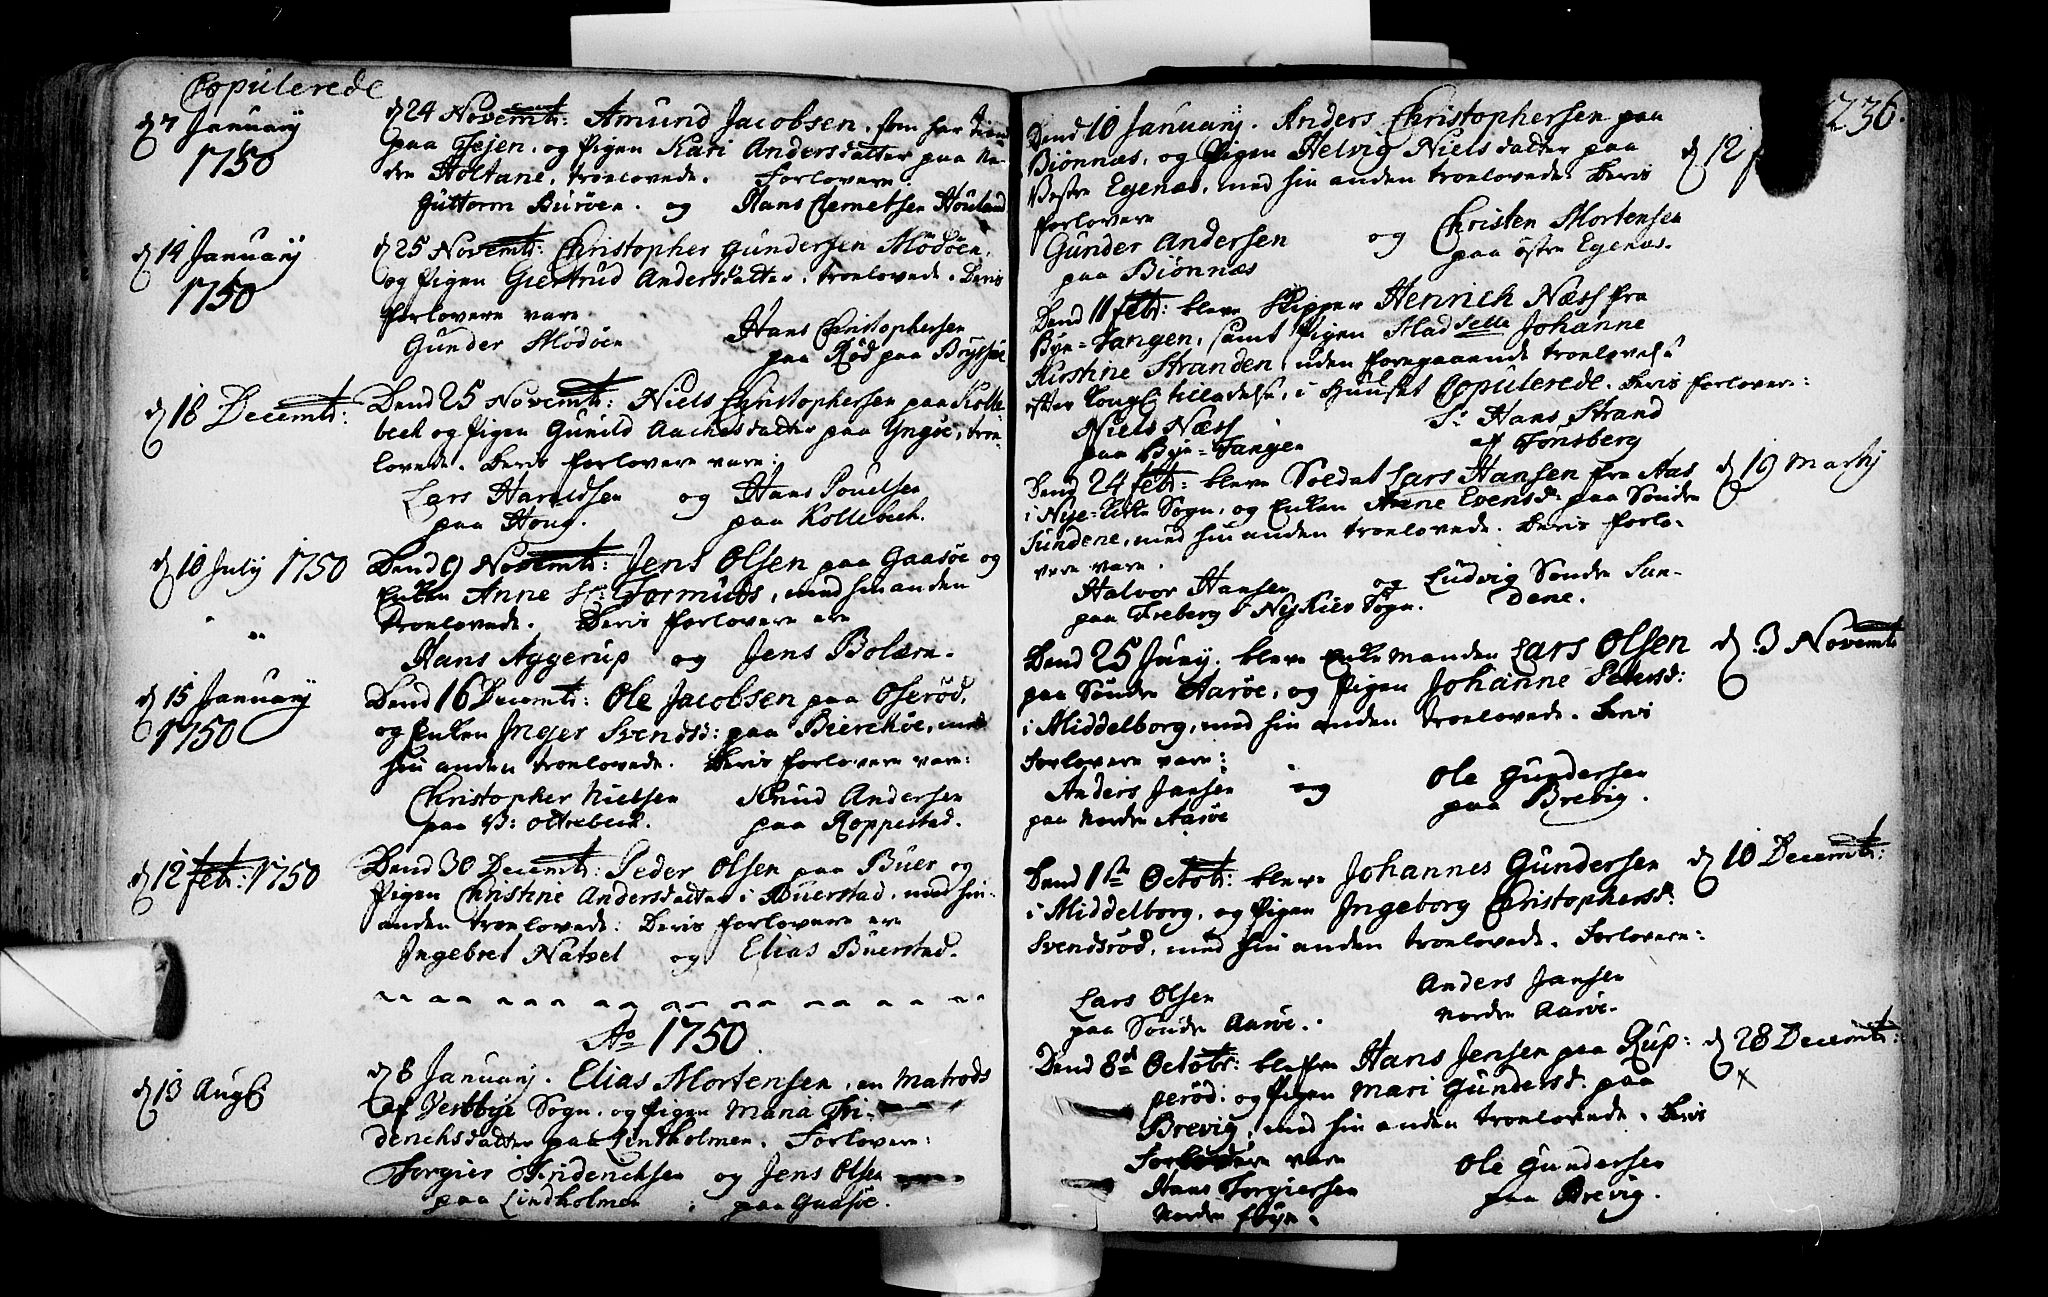 Copulerede
d 7 January
1750
d 24 Novembr: Amund Jacobsen, som har
paa Fejen, og Pigen Kari Andersdatter paa Ne-
dre Holtane, troelovede. Forlovere:
Guttorm Buröen. og Hans Clemetsen Houland
d 14 January
1750
d 25 Novembr: Christopher Gundersen Mödöen,
og Pigen Giertrud Andersdatter, troelovede. Deris
forlovere vare
Gunder Mödöen Hans Christophersen
paa Röd paa Brysöe
d 18 Decembr:
Dend 25 Novembr: Niels Christophersen paa Kolle-
bech og Pigen Gunild Aachesdatter paa Yngöe, troe-
lovede. Deris forlovere vare:
Lars Haraldsen og Hans Poulsen
paa Houg. paa Kollebech.
d 10 July 1750
Dend 9 Novembr: Jens Olsen paa Gaasöe og
Enken Anne Sr: Tormuds, med hin anden
troelovede. Deris forlovere ere
Hans Aggerup og Jens Bolærn.
d 15 January
1750
Dend 16 Decembr: Ole Jacobsen paa Oseröd,
og Enken Inger Svendsd: paa Bierchöe, med
hin anden troelovede. Deris forlovere vare:
Christopher Nielsen Knud Andersen
paa V: Oltebech. paa Roppestad.
d 12 febr: 1750
Dend 30 Decembr: Peder Olsen paa Buer og
Pigen Christine Andersdatter i Buerstad, med hin-
anden troelovede: Deris forlovere ere
Ingebret Natvel og Elias Buerstad.
Ao 1750.
d 13 Aug
d 8 January. Elias Mortensen, en Matrods
af Vestbye Sogn, og Pigen Maria Fri-
derichsdatter paa Lindholmen. Forlovere:
Torgier Friderichsen og Jens Olsen
paa Lindholmen paa Gaasöe.
236.
Dend 10 January. Anders Christophersen paa
Biönnæs, og Pigen Helvig Nielsdatter paa
Vestre Egenæs, med hin anden troelovede. Deris
d 12
forlovere
Gunder Andersen og Christen Mortensen
paa Biönnæs paa östre Egenæs.
Dend 11 febr: bleve Skipper Henrich Næss fra
Bye-Tangen, samt Pigen Madselle Johanne
Kirstine Stranden, uden foregaaende troelovelse
efter Kongl tilladelse, i Huuset Copulerede. Deris forlovere:
Niels Næss Sr Hans Strand
paa Bye-Tangen af Tonsberg
Dend 24 febr: bleve Soldat Lars Hansen fra Aas
i Nye-Kirke Sogn, og Enken Anne Evensd: paa Söndre
Sundene, med hin anden troelovede. Deris forlo-
vere vare.
d 19 Marty
Halvor Hansen og Ludvig Söndre Sun-
paa Freberg i NyKirke Sogn. dene.
Dend 25 Juny. bleve Enkemanden Lars Olsen
paa Söndre Aaröe, og Pigen Johanne Pedersd:
i Middelborg, med hin anden troelovede. Deris
d 3 Novembr
Forlovere vare:
Anders Jansen og Ole Gundersen
paa Nordre Aaröe paa Brevig.
Dend 1ste Octobr: bleve Johannes Gundersen
i Middelborg, og Pigen Ingeborg Christophersd:
Svendsröd, med hin anden troelovede. Forlovere:
d 10 Decembr:
Lars Olsen Anders Jansen
paa Söndre Aaröe. Nordre Aaröe.
Dend 8de Octobr: bleffve Hans Jensen paa Rup:
peröd: og Pigen Mari Gundersd: paa
Brevig, med hin anden troelovede. Deris
d 28 Decembr:
x
Forlovere vare
Hans Torgiersen Ole Gundersen
Nordre paa Brevig.